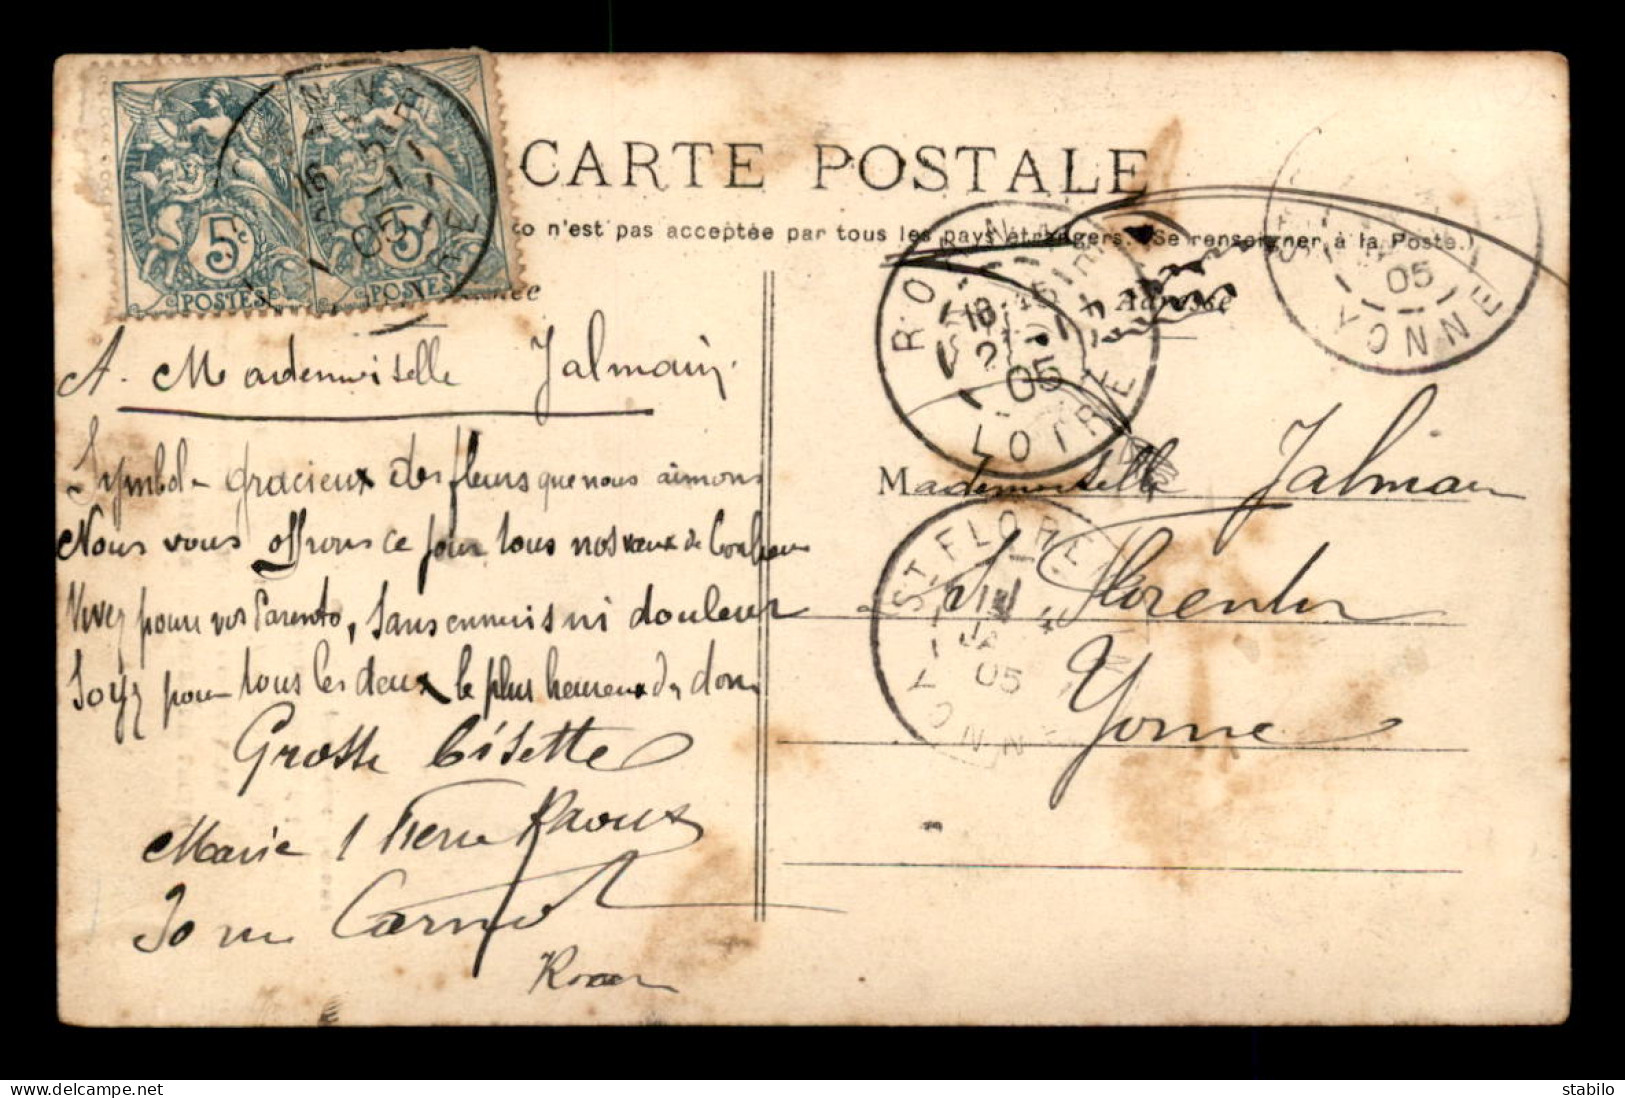 CARTE POSTALE
co n'est pas acceptée par tous les pays étrangers. (Se renseigner à la Poste.)
5c
POSTES
5
POSTES
16
1
05
Adresse
ROANNE
18 45
2 1
05
LOIRE
05
YONNE
A Mademoiselle Jalmain
Symbole gracieux des fleurs que nous aimons
Nous vous offrons ce jour tous nos vœux de bonheur
Vivez pour vos Parents, sans ennuis ni douleur
Soyez pour tous les deux le plus heureux des dons
Grosse bisette
Marie Pierre Raoux
30 rue Carnot
Roanne
Mademoiselle Jalmain
St Florentin
Yonne
ST FLORENTIN
JANV
05
YONNE
delcampe.net
stabilo